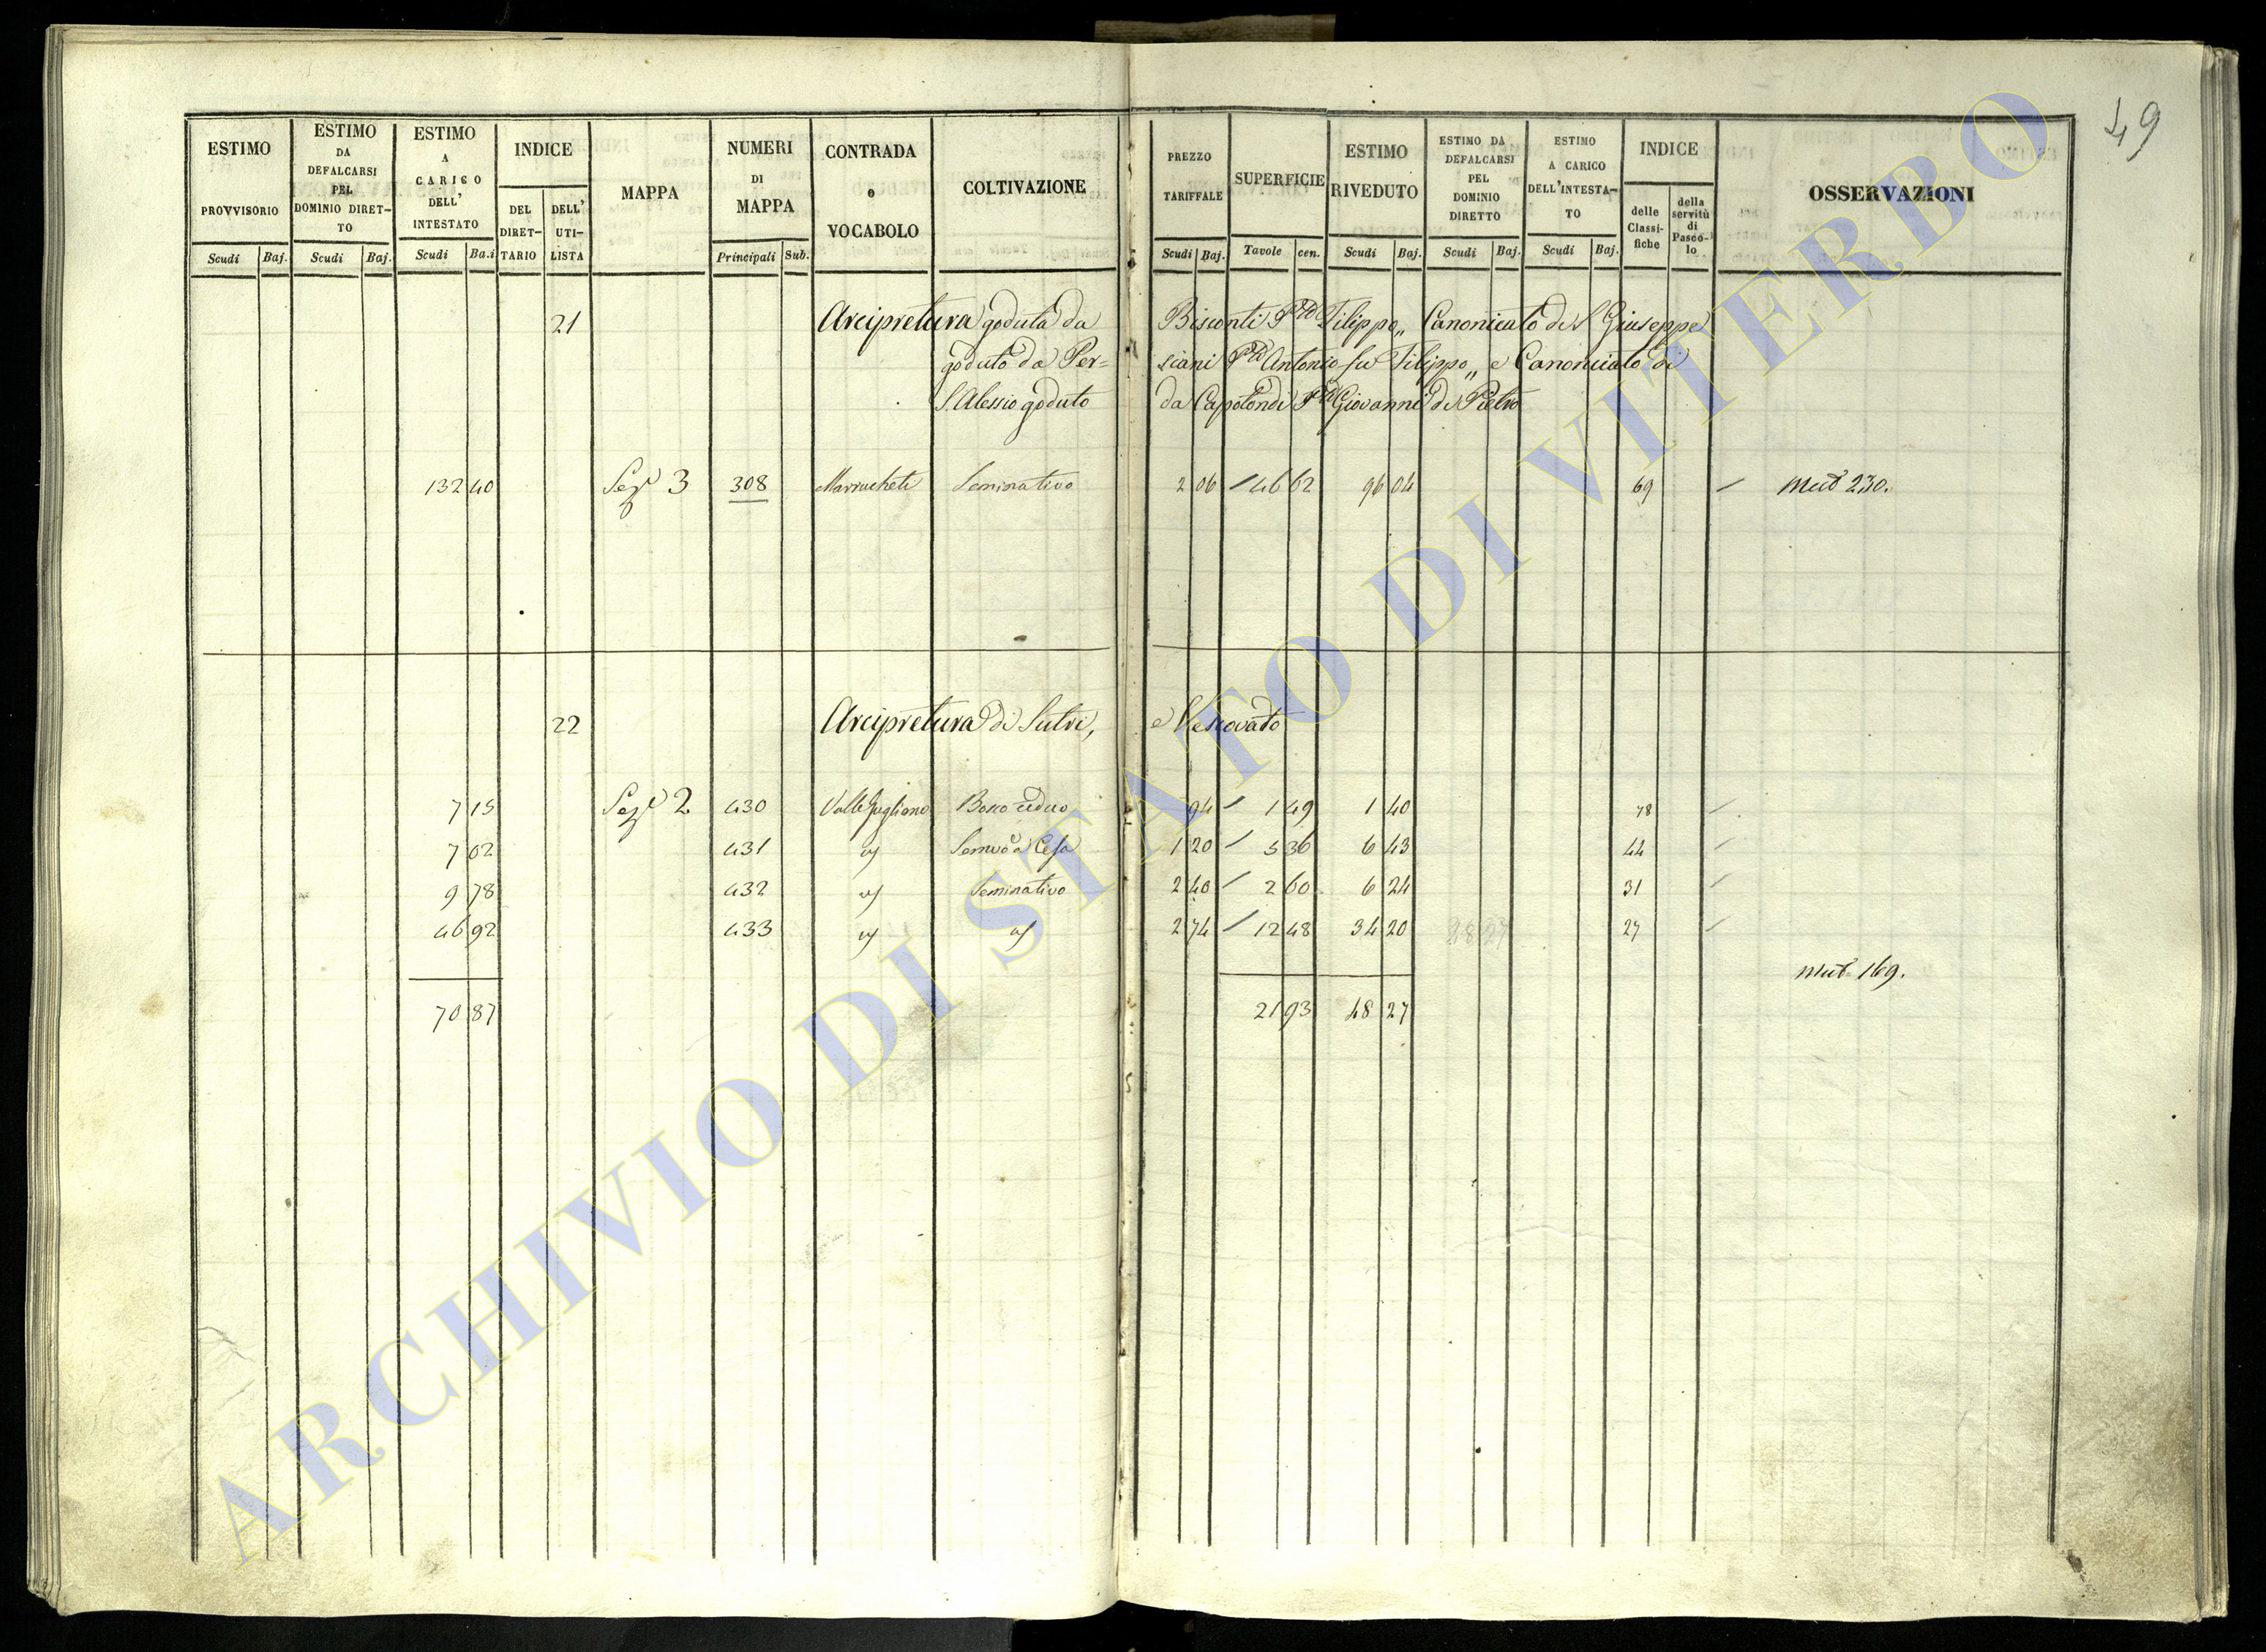 49
ESTIMO PROVVISORIO
ESTIMO DA DEFALCARSI PEL DOMINIO DIRET-TO
ESTIMO A CARICO DELL' INTESTATO
INDICE
DEL DIRET-TARIO
DELL' UTI-LISTA
MAPPA
NUMERI DI MAPPA
CONTRADA o VOCABOLO
COLTIVAZIONE
PREZZO TARIFFALE
SUPERFICIE
ESTIMO RIVEDUTO
ESTIMO DA DEFALCARSI PEL DOMINIO DIRETTO
ESTIMO A CARICO DELL'INTESTA-TO
INDICE
delle Classi-fiche
della servitù di Pasco-lo
OSSERVAZIONI
Scudi Baj. Scudi Baj. Scudi Ba.i Principali Sub. Scudi Baj. Tavole cen. Scudi Baj. Scudi Baj. Scudi Baj.
21 Arcipretura goduta da Bisconti Filippo,, Canonicato di S Giuseppe
goduto da Per= siani Antonio fu Filippo,, e Canonicato di
S. Alessio goduto da Capotondi Giovanni di Pietro
132 40 Sez 3 308 Marrucheti Seminativo 2 06 46 62 96 04 69 Mut 230.
22 Arcipretura di Sutri, e Vescovato
7 15 Sez 2 430 Bosco ceduo 94 1 49 1 40 78
7 02 431 1 20 5 36 6 43 44
9 78 432 Seminativo 2 40 2 60 6 24 31
46 92 433 2 74 12 48 34 20 28 27 27
Mut 169.
70 87 21 93 48 27
ARCHIVIO DI STATO DI VITERBO